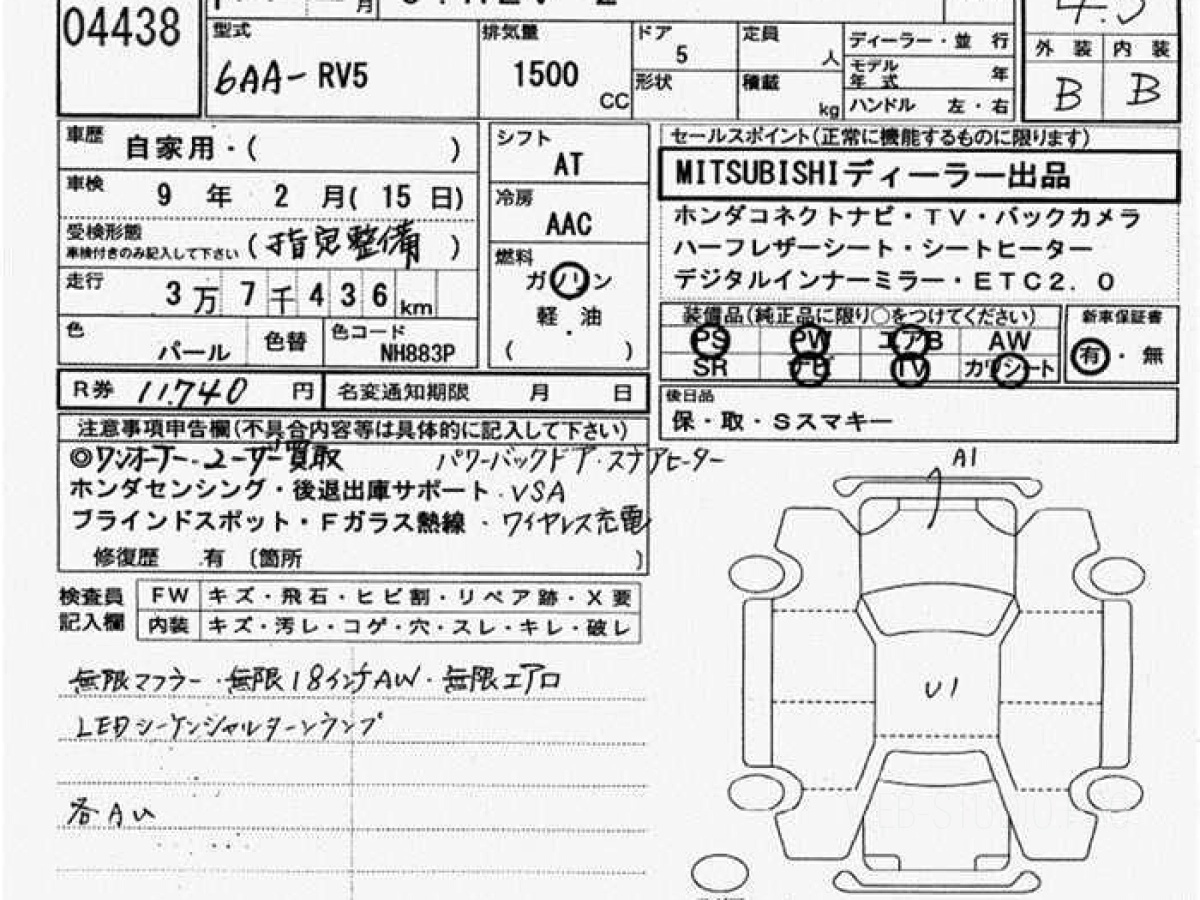 04438
月
型式
6AA-RV5
排気量
1500
CC
ドア
5
形状
定員
人
積載
kg
ディーラー・並 行
モデル年式 年
ハンドル 左・右
4.5
外 装 内 装
B B
車歴 自家用・( )
車検 9 年 2 月( 15 日)
受検形態
車検付きのみ記入して下さい ( 指定整備 )
走行 3万7千436km
色 パール 色替
色コード NH883P
シフト
AT
冷房
AAC
燃料
ガソリン
軽・油
( )
セールスポイント(正常に機能するものに限ります)
MITSUBISHIディーラー出品
ホンダコネクトナビ・TV・バックカメラ
ハーフレザーシート・シートヒーター
デジタルインナーミラー・ETC2.0
装備品(純正品に限り○をつけてください)
PS PW エアB AW
SR ナビ TV カワシート
新車保証書
有・無
R券 11.740 円 名変通知期限 月 日
後日品
保・取・Sスマキー
注意事項申告欄(不具合内容等は具体的に記入して下さい)
◎ワンオーナー・ユーザー買取 パワーバックドア・ステアヒーター
ホンダセンシング・後退出庫サポート・VSA
ブラインドスポット・Fガラス熱線・ワイヤレス充電
修復歴 有 〔箇所 〕
検査員記入欄
FW キズ・飛石・ヒビ割・リペア跡・X要
内装 キズ・汚レ・コゲ・穴・スレ・キレ・破レ
無限マフラー・無限18インチAW・無限エアロ
LEDシーケンシャルターンランプ
各AU
A1
U1